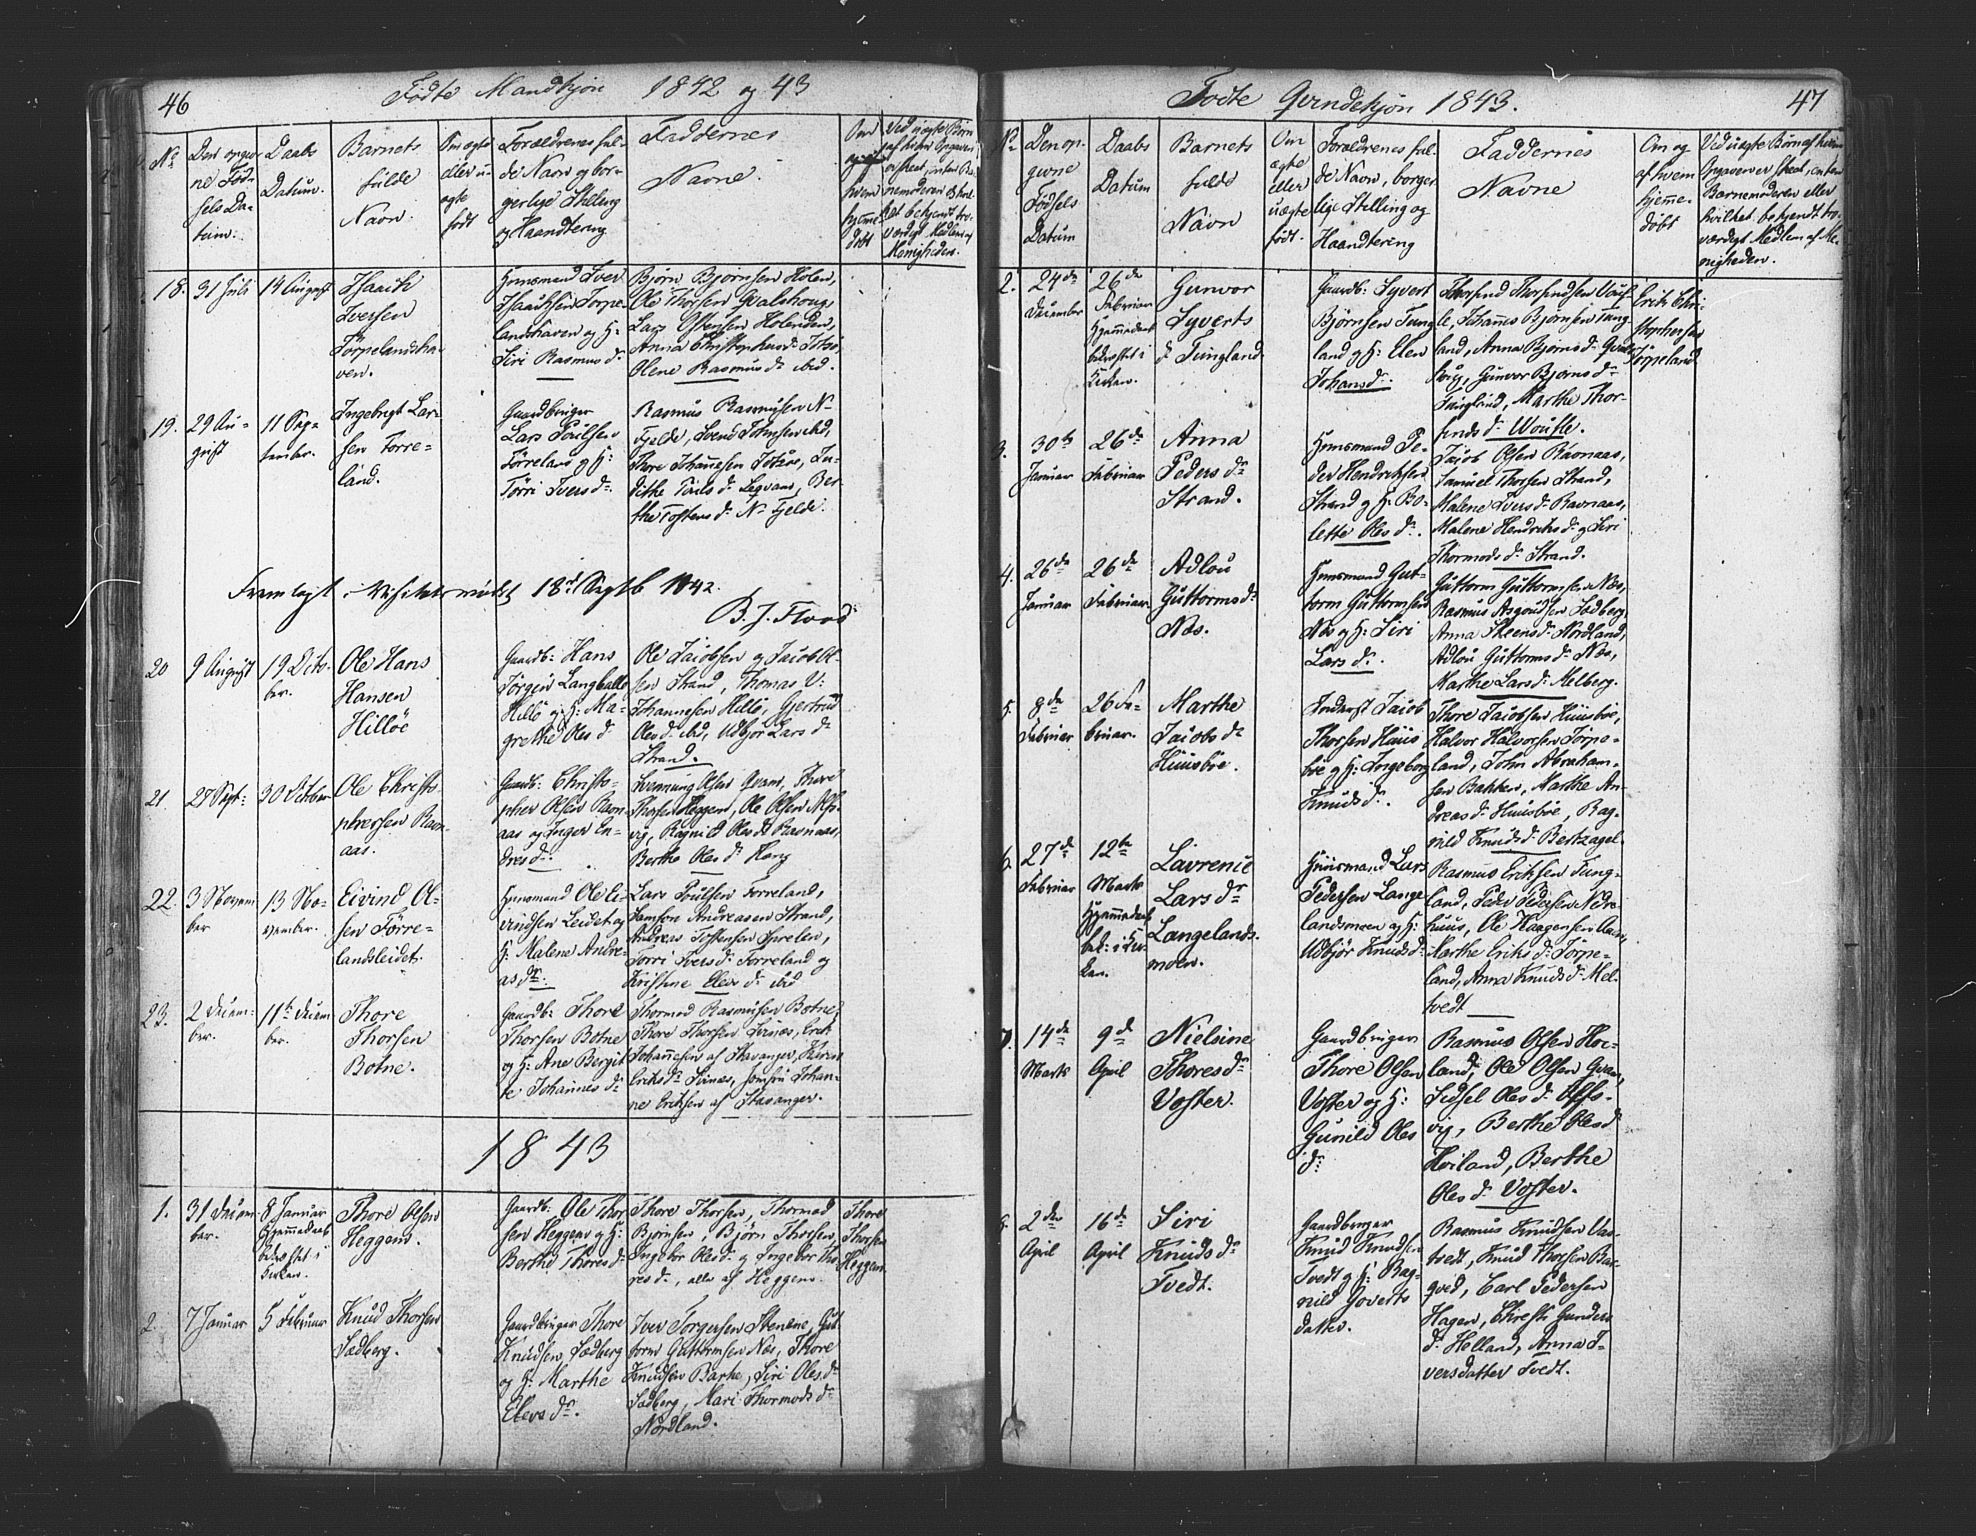 46
Fødte Mandkjøn 1842 og 43
No
Den opgivne Fødsels Datum.
Daabs Datum.
Barnets fulde Navn.
Om ægte eller uægte født
Forældrenes fulde Navn og borgerlige Stilling og Haandtering
Faddernes Navne.
18. 31 Juli
14 August
Isaach
Iversen
Tørpelandshaven.
Huusmand Iver
Isaachsen Tørpelandshaven og H:
Siri Rasmusdr
Bjørn Bjørnsen Holen,
Ole Thorsen Qvalshoug,
Lars Olsen Holenden,
Anna Christophersdr
Olene Rasmusdr ibid.
19. 29 August
11 September.
Ingebregt Larsen Førreland.
Gaardbruger
Lars Poulsen
Førreland og H:
Tørri Iversdr.
Rasmus Rasmusen N.
Fjelde, Svend Johnsen ibid,
Thore Johannesen
the Tostensdr N. Fjelde.
Fremlagt i Visitatsmødet 18d Septb 1842.
B. J. Flood
20
9 August
19 October.
Ole Hans
Hansen
Hilløe
Gaardb: Hans
Jørgen Langballe
Hillø og H: Magrethe Olesdr
Ole Jacobsen og Jacob Olsen Strand, Thomas V:
Johannesen Hillø, Gjertrud
Olesdr ibid, Udbjør Larsdr
Strand.
21.
27 Sept:
30 October
Ole Christophersen Ravnaas.
Gaardb: Christopher Olsen Ravnaas og Inger Endresdr.
Svennung Olsen Qvam, Thore
Thorsen Heggem, Ole Olsen
vig, Ragnild Olesdr Ravnaas,
Berthe Olesdr Haug
22.
3 November
13 November.
Eivind Olsen Førrelandsleidet.
Huusmand Ole Eivindsen Leidet og
H: Malene Andreasdr.
Lars Poulsen Førreland,
Samson Andreasen Strand,
Andreas Tostensen
Torri Iversdr Førreland og
Kristine Elevsdr ibid
23.
2 December.
11te December.
Thore
Thorsen
Botne.
Gaardb: Thore
Thorsen Botne
og H: Ane Bergitte Johannesdr
Thormod Rasmusen Botne,
Thore Thorsen Sirnæs, Erik
Johannesen af Stavanger, Karen
Eriksdr Sirnæs, Jomfru Johanne Eriksen af Stavanger.
1843
1.
31 December.
8 Januar
Hjemmedaab
bekræftet i
Kirken.
Thore Olsen
Heggem.
Gaardb: Ole Thorsen Heggem og H:
Berthe Thoresdr
Thore Thorsen, Thormod
Bjørnsen, Bjørn Thorsen,
Ingebor Olesdr og Ingebor Thoresdr, alle af Heggem.
Thore
Thorsen
Heggem
2.
7 Januar
5 Februar
Knud Thorsen
Sædberg.
Gaardbruger Thore
Knudsen Sædberg
og H: Marthe
Elevsdr.
Iver Torgersen Stenene, Guttorm Guttormsen Næs, Thore
Knudsen Barke, Siri Olesdr
Sædberg, Mari Thormodsdr
Nordland.
47
Fødte Qvindekjøn 1843.
No
Den opgivne
Fødsels
Datum
Daabs
Datum
Barnets
fulde
Navn
Om
ægte
eller
uægte
født.
Forældrenes fulde Navn, borgerlige Stilling og
Haandtering
Faddernes
Navne
Om og
af hvem
hjemmedøbt
Ved uægte Børn af hvem
Opgaven er skeet, enten
Barnemoderen eller
hvilket bekjendt troværdigt Medlem af Menigheden.
2.
24de
December
26de
Februar
Hjemmedaab
bekræftet i
Kirken.
Gunvor
Syvertsdr Tungland
Gaardb: Syvert
Bjørnsen Tungland og H: Elen
Johansdr.
Thorfind Thorfindsen
Johannes Bjørnsen Tungland, Anna Bjørnsdr
Gunvor Bjørnsdr
Tungland, Marthe Thorfindsdr
Erik Christophersen
Tørpeland
3.
30te
Januar
26de
Februar
Anna
Pedersdr
Strand.
Huusmand Peder Hendriksen
Strand og H: Bolette Olesdr.
Jacob Olsen Ravnaas,
Samuel Thorsen Strand,
Malene Iversdr Ravnaas,
Malene Hendriksdr og Siri
Thormodsdr Strand.
4.
26de
Januar
26de
Februar.
Adlou
Guttormsdr
Næs.
Huusmand Guttorm Guttormsen
Næs og H: Siri
Larsdr.
Guttorm Guttormsen Næs,
Rasmus Asgoudsen Sædberg,
Anna Steensdr Nordland,
Adlou Guttormsdr Næs,
Marthe Larsdr Melberg.
5.
8de
Februar
26 Februar.
Marthe
Jacobsdr
Huusboe.
Inderst Jacob
Thorsen Huusboe og H: Ingeborg
Knudsdr.
Thore Jacobsen Huusboe,
Halvor Halvorsen Tørpeland, John Abrahamsen Bakken, Marthe Andreasdr Huusboe, Ragnild Knudsdr Bertzagel.
6.
27de
Februar
12te
Marts
Hjemmedaab
bek: i Kirken.
Lavrenie
Larsdr
Langelandsmoen.
Huusmand Lars
Pedersen Langelandsmoen og H:
Udbjør Knudsdr
Rasmus Eriksen Tungland, Peder Pedersen Nedrehuus, Ole Haagensen
Marthe Eriksdr Tørpeland, Anna Knudsdr Meltvedt
7.
14de
Marts
9de
April
Nielsine
Thoresdr
Voster.
Gaardbruger
Thore Olsen
Voster og H:
Gunild Olesdr
Rasmus Olsen Hoeland, Ole Olsen Qvam,
Sidsel Olesdr
Berthe Olesdr
Hviland, Berthe
Olesdr Voster.
8.
2den
April
16de
April
Siri
Knudsdr
Tvedt.
Gaardbruger
Knud Knudsen
Tvedt og H: Ragnild Govertsdatter.
Rasmus Knudsen Vastvedt, Knud Thorsen Bargved, Carl Pedersen
Hagen, Christi Gundersdr Helland, Anna Iversdatter Tvedt.